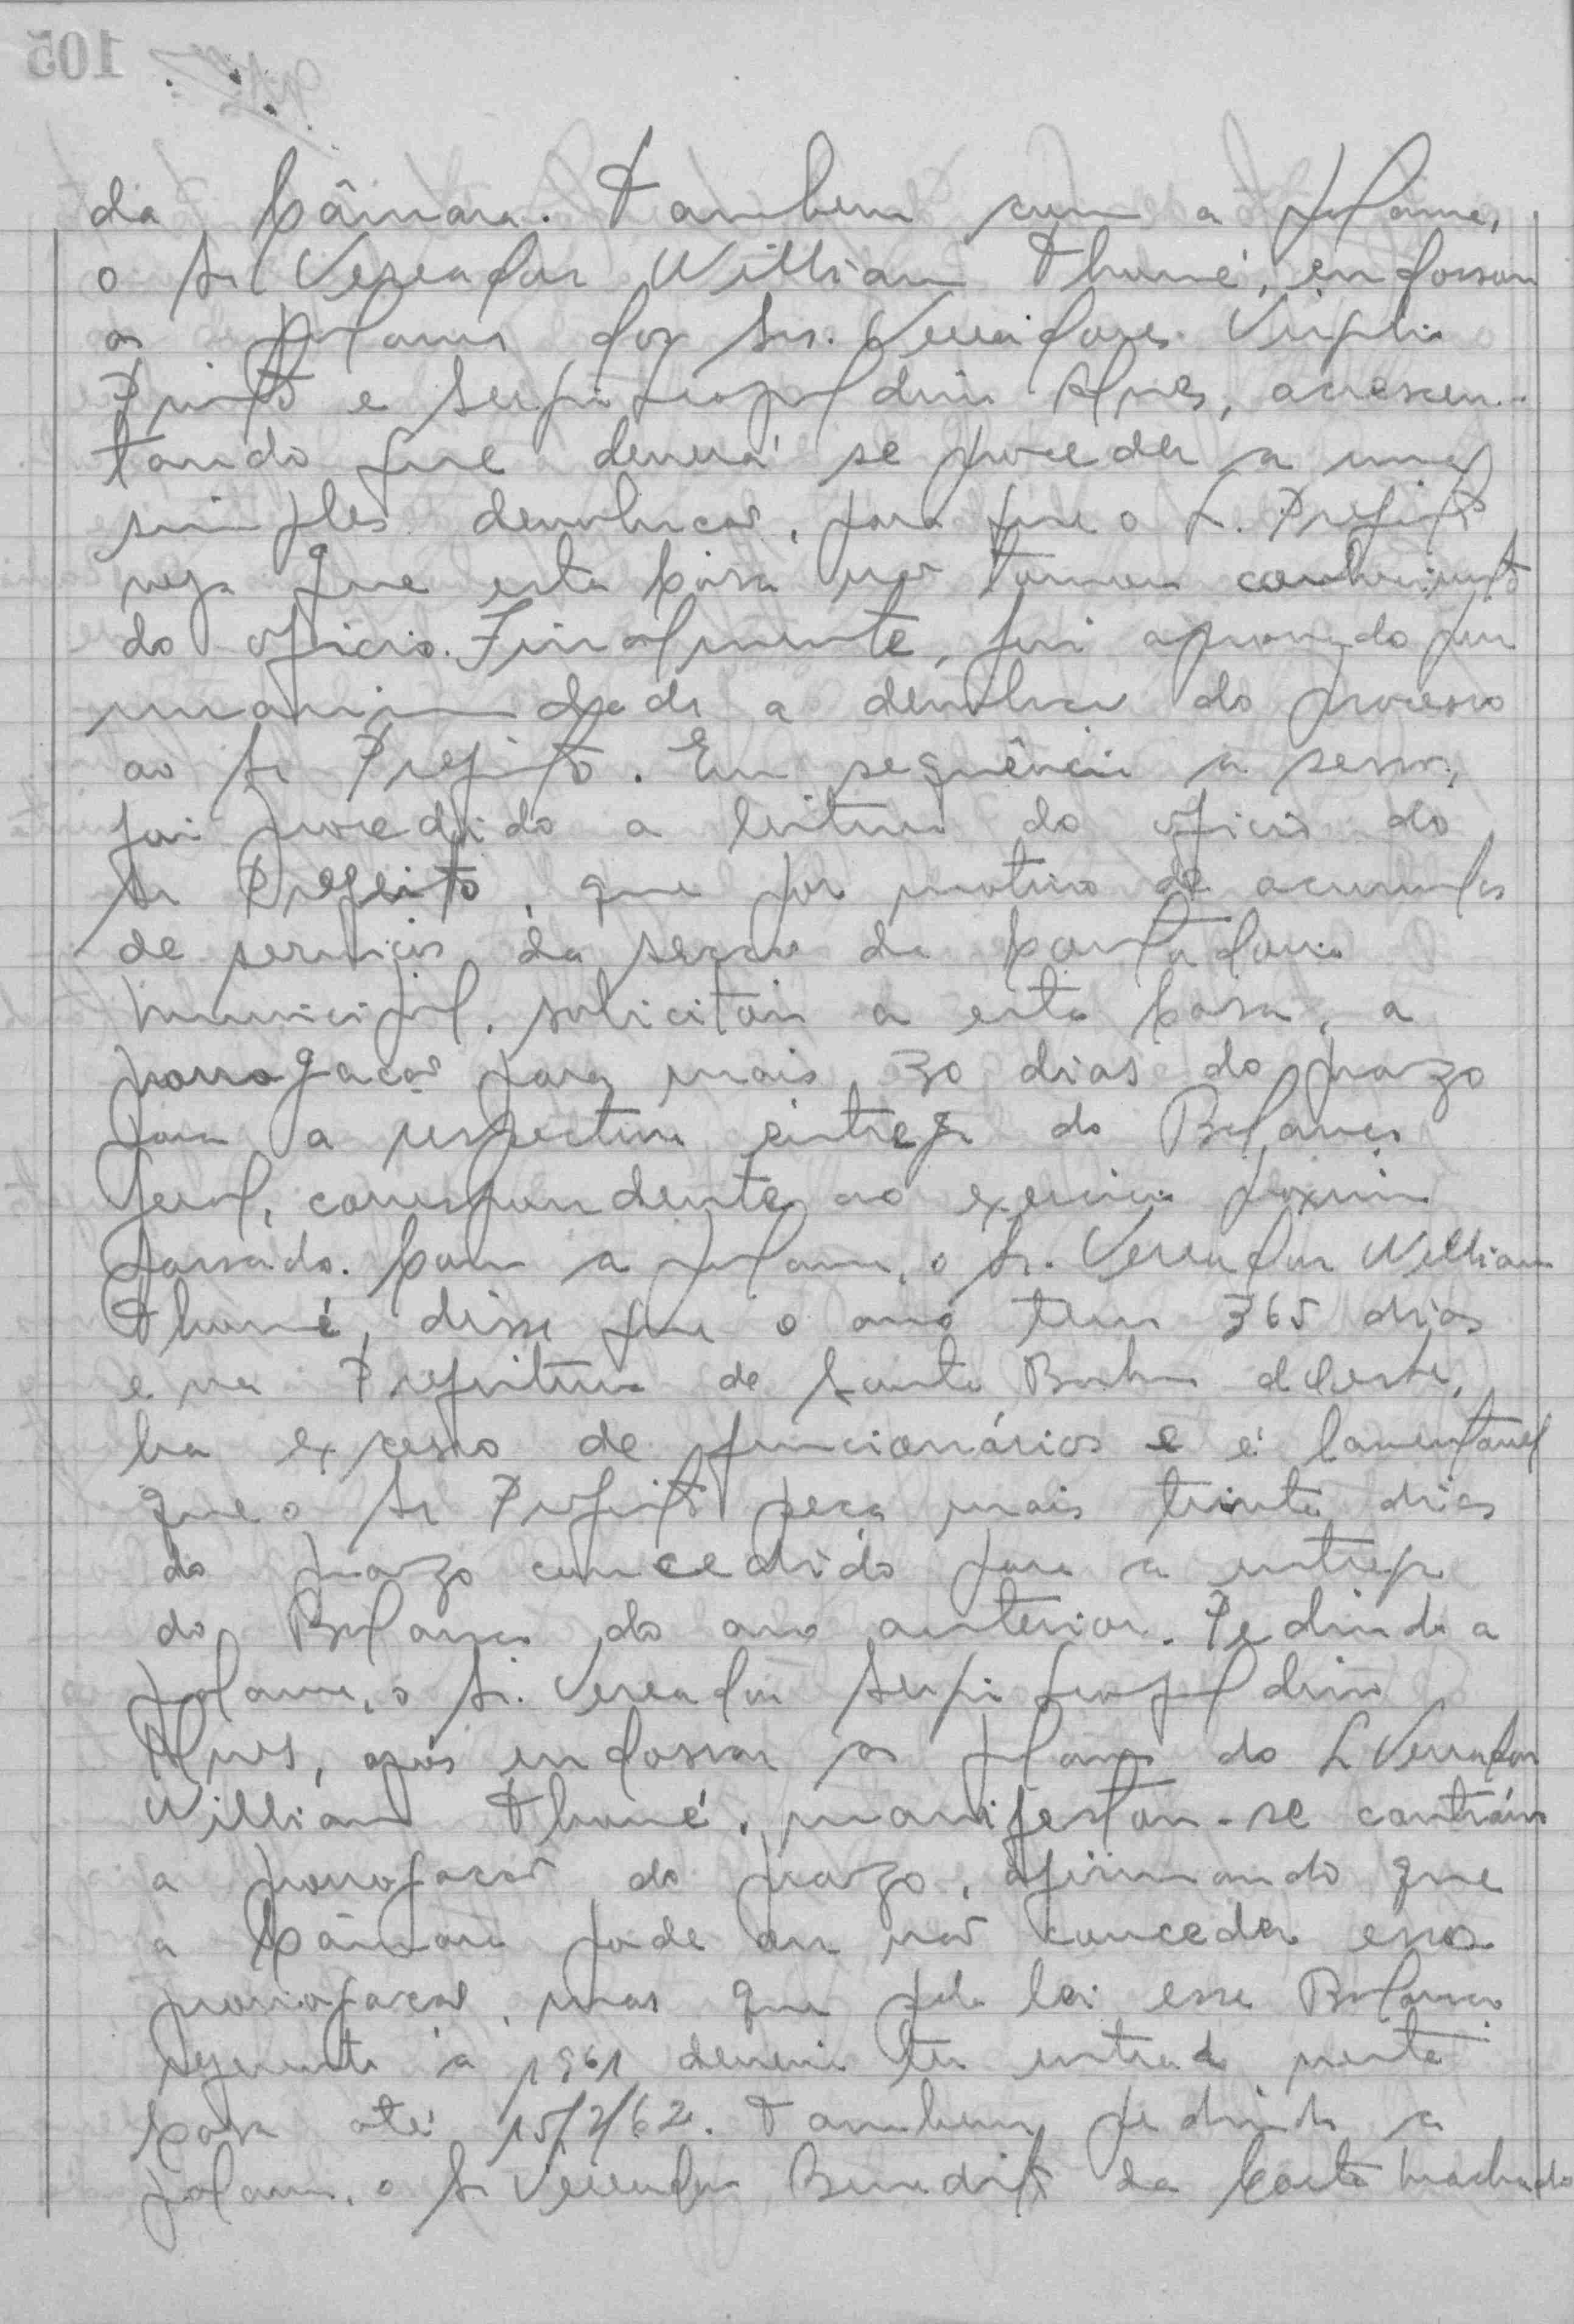 da Câmara. Tambem com a palavra,
o Sr Vereador William Thomé, endossou
as palavras dos Srs. Vereadores Virgilio
Pinto e Sergio Leopoldino Alves, acrescen-
tando que deverá se proceder a uma
simples devolucão, para que o S. Prefeito
veja que esta Casa não tomou conhecimento
do oficio. Finalmente, foi aprovado por
unanimidade a devolução do processo
ao Sr Prefeito. Em sequência a sessão,
foi procedido a leitura do oficio do
Sr Prefeito, que por motivo de acumulos
de servicos da seccão da Contadoria
Municipal, solicitou a esta Casa, a
prorrogacão para mais 30 dias do prazo
para a respectiva entrega do Balanço
Geral, correspondente ao exercicio proximo
passado. Com a palavra, o Sr. Vereador William
Thomé, disse que o ano tem 365 dias
e na Prefeitura de Santa Barbara dOeste,
ha excesso de funcionários e é lamentavel
que o Sr Prefeito peca mais trinta dias
do prazo concedido para a entrega
do Balanço do ano anterior. Pedindo a
palavra, o Sr. Vereador Sergio Leopoldino
Alves, após endossar as palavras do S Vereador
William Thomé, manifestou-se contrário
a prorrogacão do prazo, afirmando que
a Câmara pode ou não conceder essa
prorrogacão, mas que pela lei esse Balanço
referente à 1961 deveria ter entrada nesta
Casa até 15/2/62. Tambem pedindo a
palavra, o Sr Vereador Benedito da Costa Machado
105